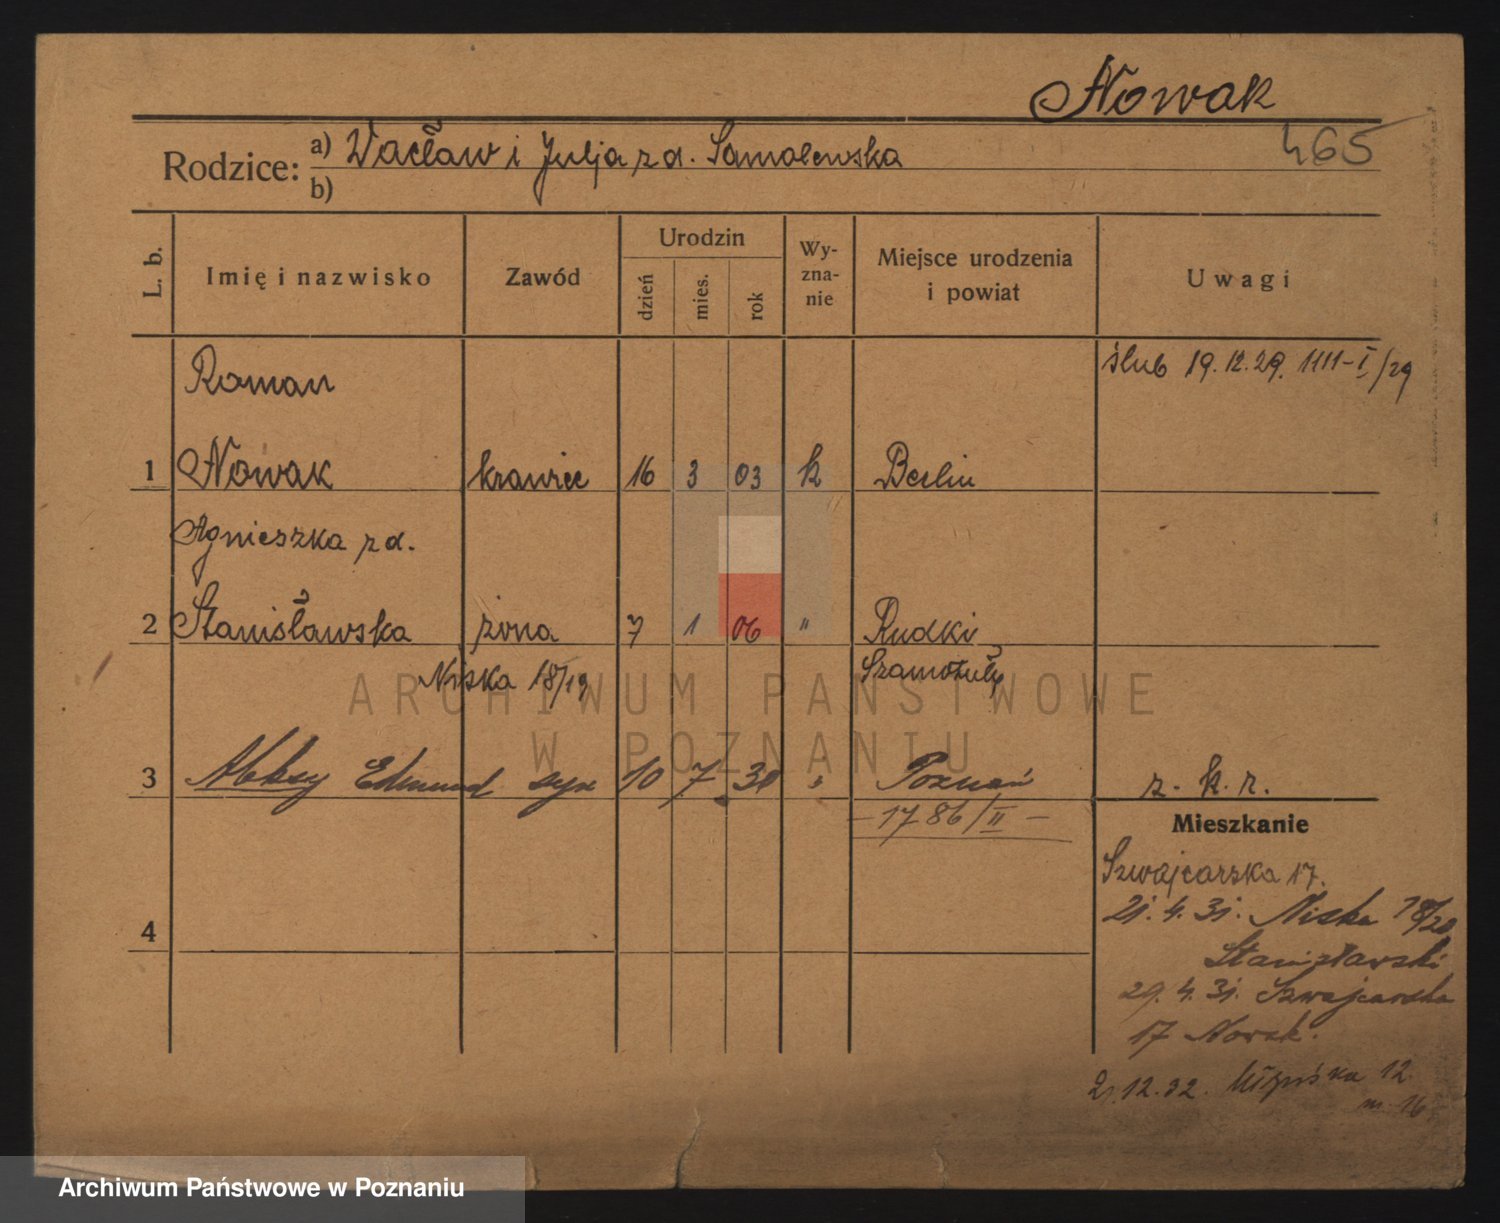 Nowak
465
Rodzice: a) Wacław i Julja z d. Samolewska
b)
L. b.
Imię i nazwisko
Zawód
Urodzin
dzień
mies.
rok
Wy-
zna-
nie
Miejsce urodzenia
i powiat
Uwagi
Roman
ślub 19.12.29. 1111-I/29
1 Nowak krawiec 16 3 03 k Berlin
Agnieszka z d.
2 Stanisławska żona 7 1 06 " Rudki
Niska 18/19 Szamotuły
3 Edmund syn 10 7 30 " Poznań z. k. r.
- 1786/II -
Mieszkanie
Szwajcarska 17.
21.4.31. Niska 18/20
4
Stanisławski
29.4.31. Szwajcarska
17 Nowak.
2.12.32. 12
m. 16
ARCHIWUM PAŃSTWOWE
W POZNANIU
Archiwum Państwowe w Poznaniu